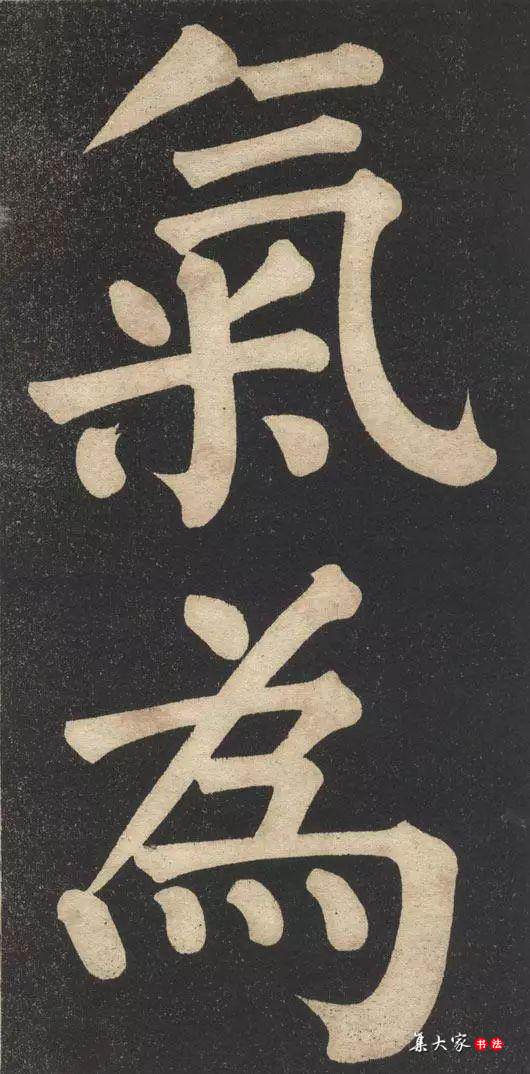 氣
為
集大家 书法